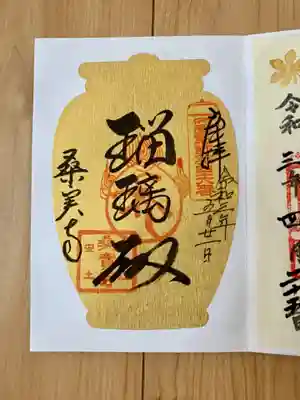 奉拝
令和三年
五月廿一日
瑠璃殿
桑実寺
令和三年四月二十五日